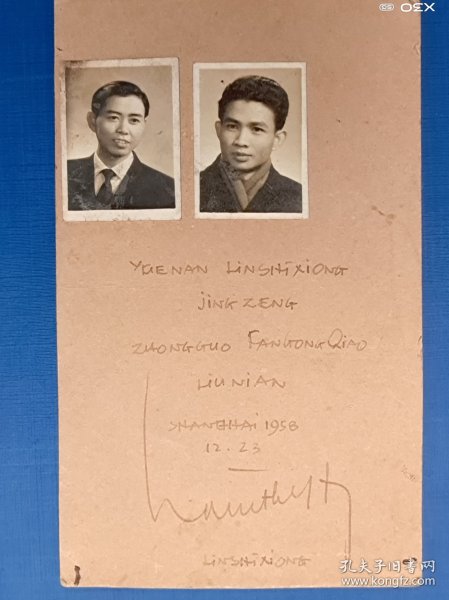 X30
YUENAN LINSHIXIONG
JING ZENG
ZHONGGUO FANGONGQIAO
LIUNIAN
SHANGHAI 1958
12.23
LINSHIXIONG
孔夫子旧书网
www.kongfz.com